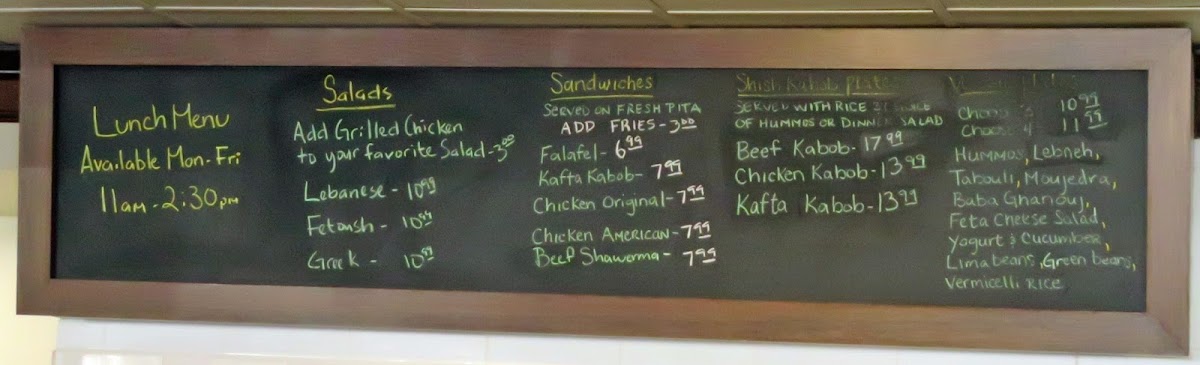 Lunch Menu
Available Mon-Fri
11am-2:30pm
Salads
Add Grilled Chicken
to your favorite Salad-3.00
Lebanese - 10.99
Fetoush - 10.99
Greek - 10.99
Sandwiches
SERVED ON FRESH PITA
ADD FRIES-3.00
Falafel-6.99
Kafta Kabob-7.99
Chicken Original-7.99
Chicken AMERICAN-7.99
Beef Shawerma-7.99
Shish Kabob Plates
SERVED WITH RICE
OF HUMMOS OR DINNER SALAD
Beef Kabob-17.99
Chicken Kabob-13.99
Kafta Kabob-13.99
10.99
11.99
Hummos, Lebneh,
Tabouli, Moujedra,
Baba Ghanouj,
Feta Cheese Salad,
Yogurt & Cucumber,
Lima beans, Green beans,
Vermicelli RICE